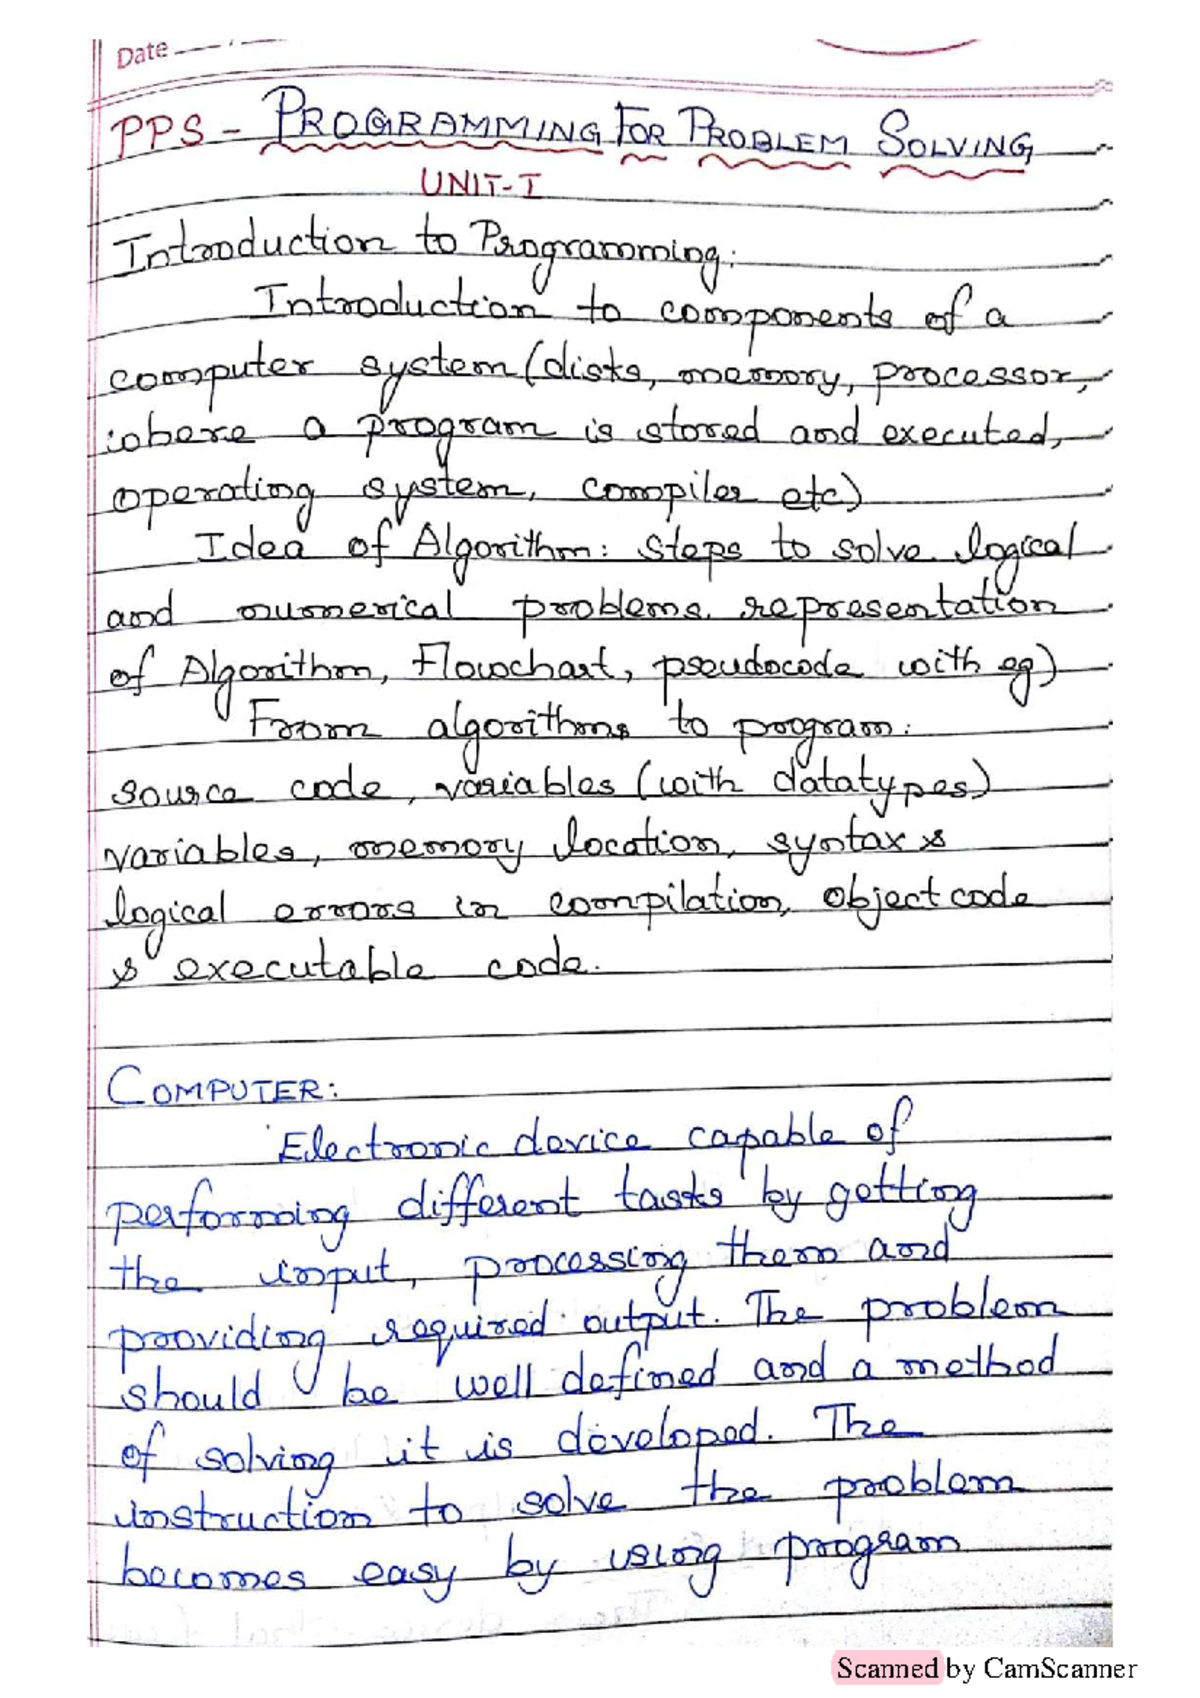 Date
PPS - PROGRAMMING FOR PROBLEM SOLVING
UNIT-I
Introduction to Programming:
Introduction to components of a
computer system (disks, memory, processor,
where a program is stored and executed,
operating system, compiler etc)
Idea of Algorithm: steps to solve logical
and numerical problems. representation
of Algorithm, Flowchart, pseudocode with eg)
From algorithms to program:
source code, variables (with datatypes)
variables, memory location, syntax &
logical errors in compilation, object code
& executable code.
COMPUTER:
Electronic device capable of
performing different tasks by getting
the input, processing them and
providing required output. The problem
should be well defined and a method
of solving it is developed. The
instruction to solve the problem
becomes easy by using program
Scanned by CamScanner